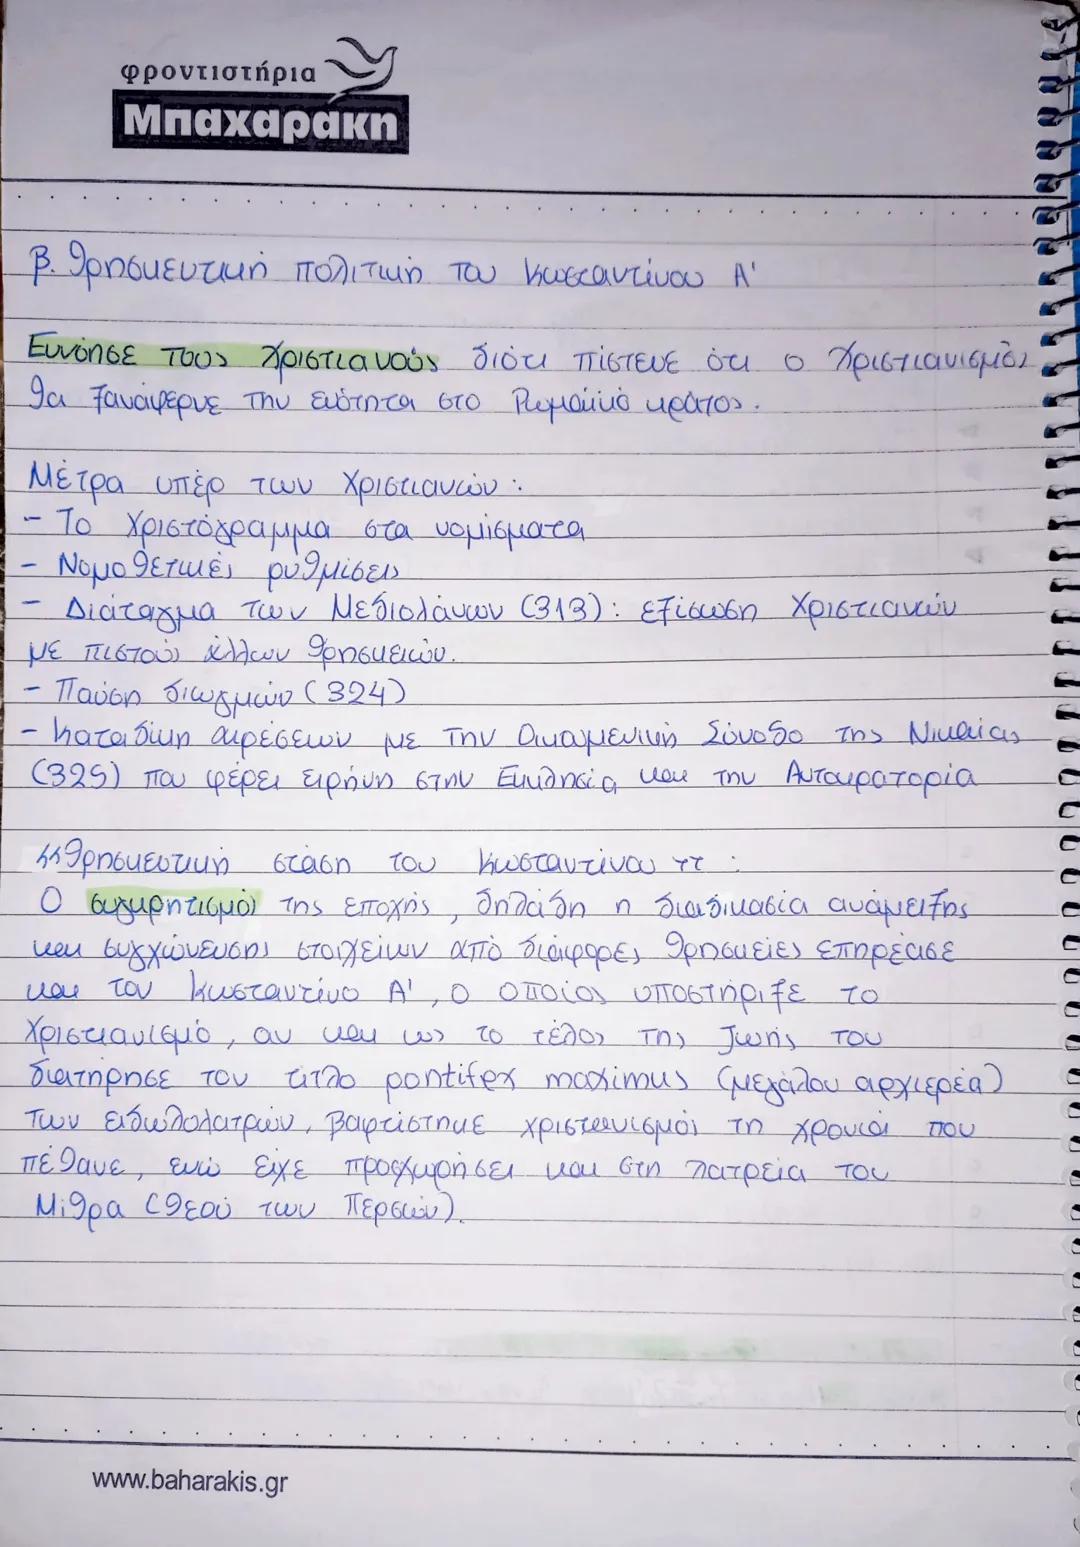 φροντιστήρια
Μπαχαράκη
β. θρησκευτική πολιτική του Κωσταντίνου Α'
Ευνόησε τους Χριστιανούς διότι πίστευε ότι ο Χριστιανισμός
θα ξαναέφερνε την ενότητα στο Ρωμαϊκό κράτος.
Μέτρα υπέρ των Χριστιανών :
- Το Χριστόγραμμα στα νομίσματα
- Νομοθετικές ρυθμίσεις
- Διάταγμα των Μεδιολάνων (313) : εξίσωση Χριστιανών
με πιστού άλλων θρησκειών.
- Παύση διωγμών (324)
- Καταδίκη αιρέσεων με την Οικουμενική Σύνοδο της Νικαίας
(325) που φέρει ειρήνη στην Εκκλησία και την Αυτοκρατορία
"θρησκευτική στάση του Κωσταντίνου" :
Ο συγκρητισμός της εποχής, δηλάδη η διαδικασία ανάμειξης
και συγχώνευσης στοιχείων από διάφορες θρησκείες επηρέασε
και τον Κωσταντίνο Α', ο οποίος υποστήριξε το
Χριστιανισμό, αν και ως το τέλος της ζωής του
διατήρησε τον τίτλο pontifex maximus (μεγάλου αρχιερέα)
των ειδωλολατρών, βαφτίστηκε χριστιανισμός τη χρονιά που
πέθανε, ενώ είχε προσχωρήσει και στη λατρεία του
Μίθρα (θεού των Περσών).
www.baharakis.gr